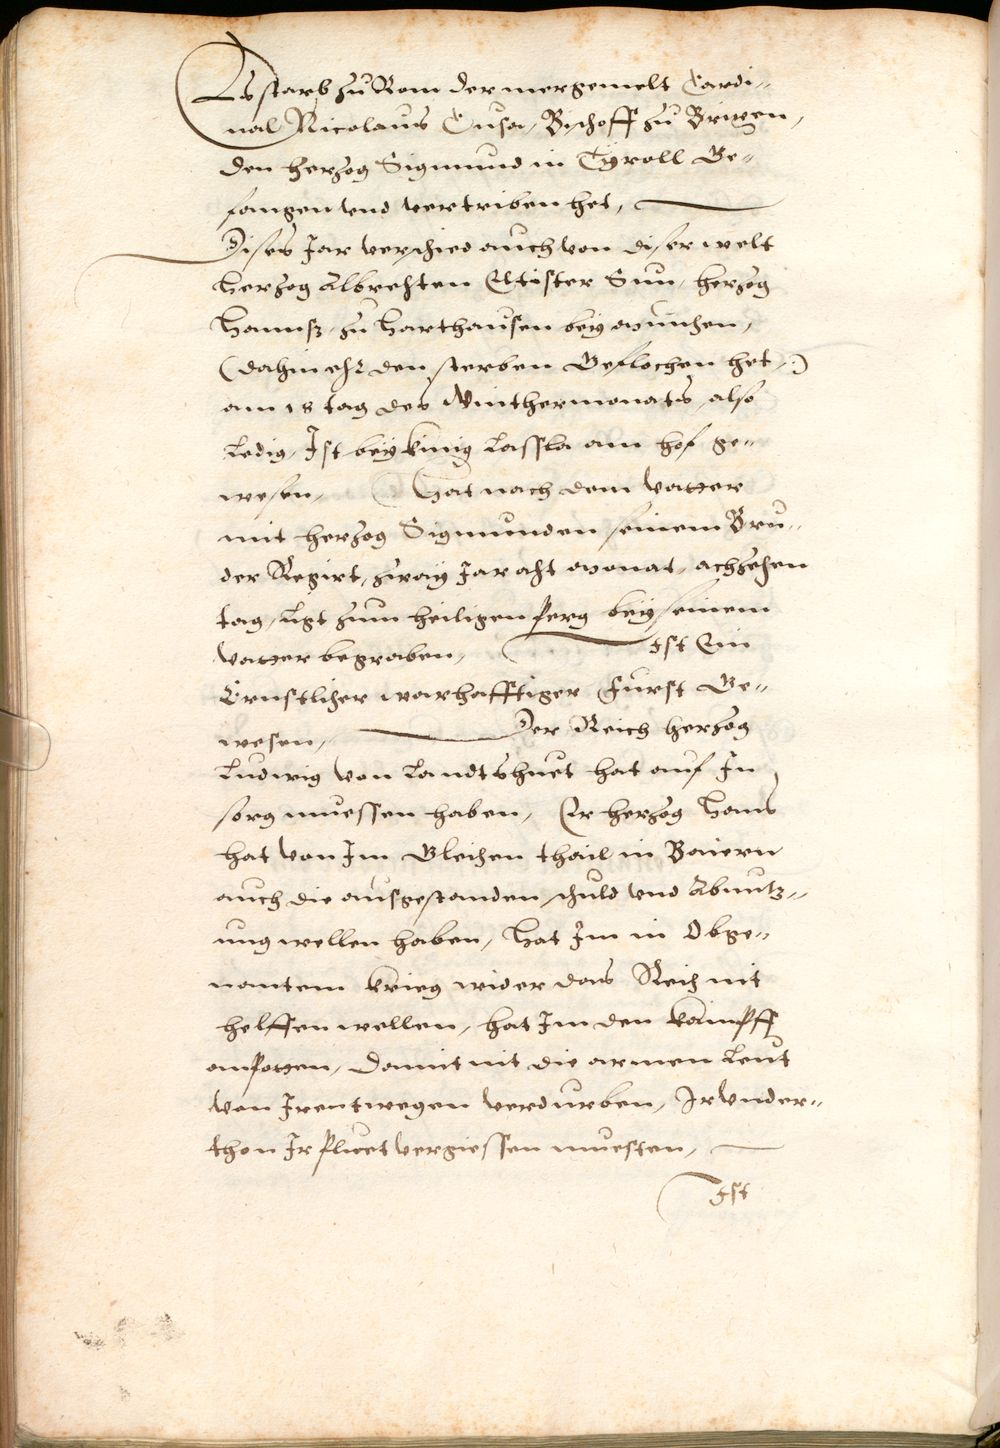 Es starb zu Rom der mergemelt Cardi-
nal Nicolaus Cusa, Bischoff zu Brixen,
den herzog Sigmund in Tyroll Ge-
fangen vnd vertriben het,
Dises Jar verschied auch von diser welt
Herzog Albrechten Eltister Sun, herzog
Hannß, zu Harthausen bey München,
(dahin ehr den sterben Geflochen het,)
am 18 tag des Winthermonats, also
Ledig, Ist bey Kinig Lassla am hof ge-
wesen, Hat nach dem Vatter
mit herzog Sigmunden seinem Bru-
der Regirt, zway Jar acht monat, achzehen
tag, Ligt zum heiligen perg bey seinem
Vatter begraben, Ist Ein
Ernstlicher warhafftiger Furst Ge-
wesen, Der Reich herzog
Ludwig von Landtshuet hat auf In
sorg muessen haben, Er herzog Hans
hat von Im Gleichen thail in Baiern
auch die ausgestanden schuld vnd Abnutz-
ung wellen haben, Hat Im in Obge-
nantem Krieg wider das Reich nit
helffen wellen, hat Im den Kampff
anpotten, Damit nit die armen Leut
von Irentwegen verdurben, Ir Vnder-
thon Ir pluet vergiessen muesten,
Ist